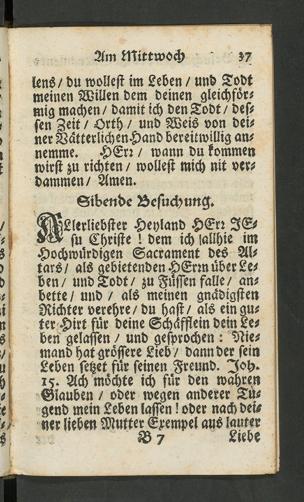 Am Mittwoch 37
lens / du wollest im Leben / und Todt
meinen Willen dem deinen gleichför-
mig machen / damit ich den Todt / des-
sen Zeit / Orth / und Weis von dei-
ner Vätterlichen Hand bereitwillig an-
nemme. HErr / wann du kommen
wirst zu richten / wollest mich nit ver-
dammen / Amen.
Sibende Besuchung.
ALlerliebster Heyland HErr JE-
su Christe ! dem ich allhie im
Hochwürdigen Sacrament des Al-
tars / als gebietenden HErrn über Le-
ben / und Todt / zu Füssen falle / an-
bette / und / als meinen gnädigsten
Richter verehre / du hast / als ein gu-
ter Hirt für deine Schäfflein dein Le-
ben gelassen / und gesprochen : Nie-
mand hat grössere Lieb / dann der sein
Leben setzet für seinen Freund. Joh.
15. Ach möchte ich für den wahren
Glauben / oder wegen anderer Tu-
gend mein Leben lassen ! oder nach dei-
ner lieben Mutter Exempel aus lauter
B 7 Liebe